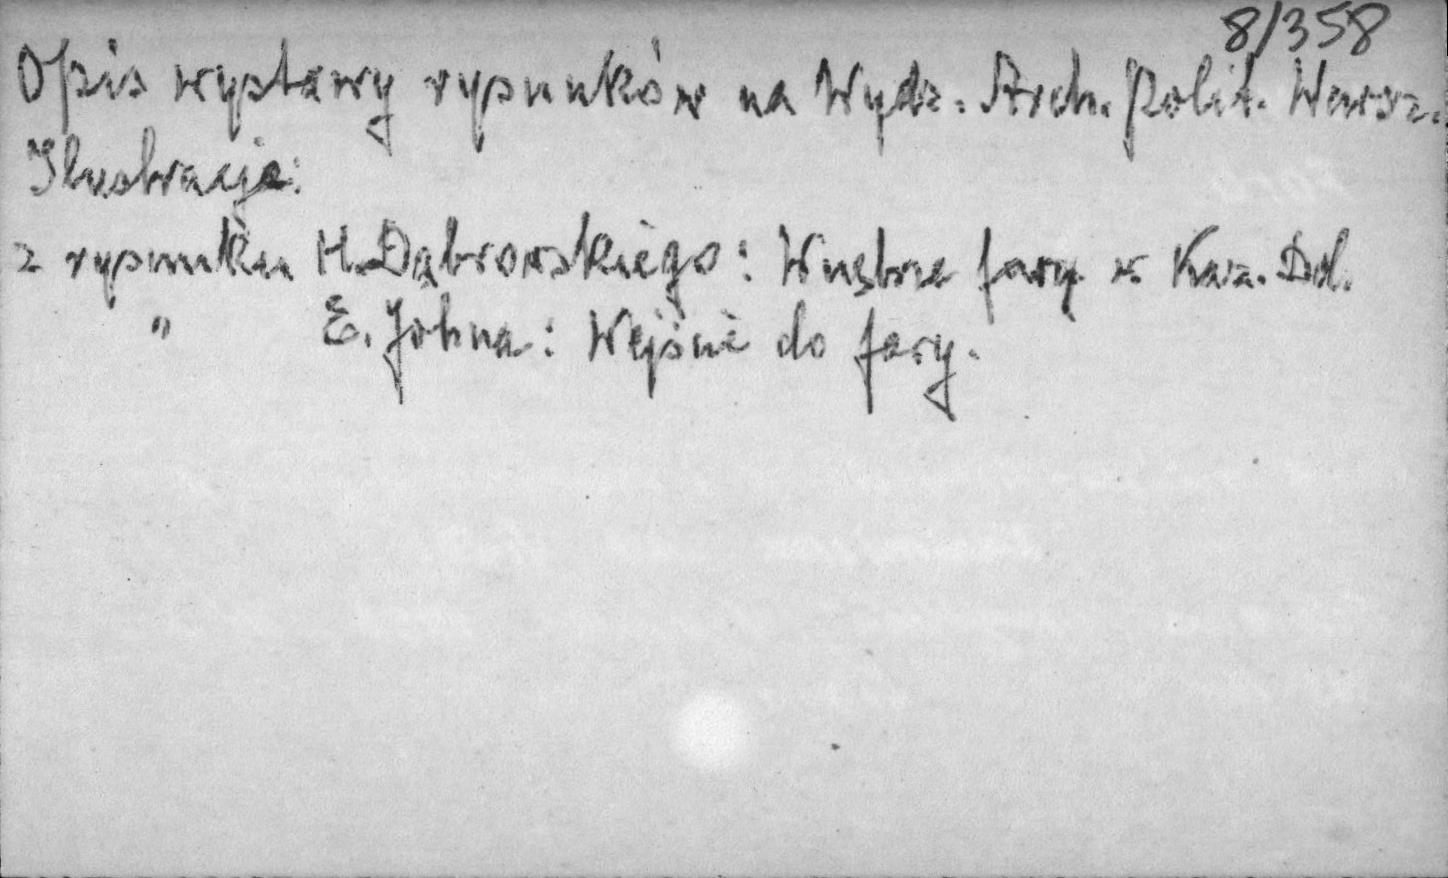 8/358
Opis wystawy rysunków na Wydz. Arch. Polit. Warsz.
Ilustracje:
z rysunku H. Dąbrowskiego: Wnętrze fary w Kaz. Dol.
" E. Johna: Wejście do fary.